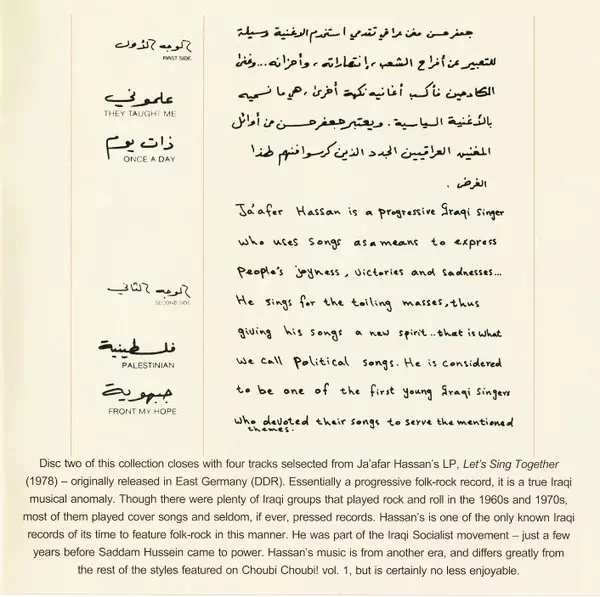 الوجه الأول
FIRST SIDE
علموني
THEY TAUGHT ME
ذات يوم
ONCE A DAY
الوجه الثاني
SECOND SIDE
فلسطينية
PALESTINIAN
جبهوية
FRONT MY HOPE
جعفر حسن مغن عراقي تقدمي استخدم الاغنية وسيلة
للتعبير عن أفراح الشعب، إنتصاراته، وأحزانه... وغنى
للكادحين فأكسب أغانيه نكهة أخرى، هي ما نسميه
بالأغنية السياسية. ويعتبر جعفر حسن من أوائل
المغنين العراقيين الجدد الذين كرسوا فنهم لهذا
الغرض.
Ja'afer Hassan is a progressive Iraqi singer
who uses songs as a means to express
people's joyness, victories and sadnesses...
He sings for the toiling masses, thus
giving his songs a new spirit.. that is what
we call Political songs. He is considered
to be one of the first young Iraqi singers
who devoted their songs to serve the mentioned
themes.
Disc two of this collection closes with four tracks selsected from Ja'afar Hassan's LP, Let's Sing Together
(1978) – originally released in East Germany (DDR). Essentially a progressive folk-rock record, it is a true Iraqi
musical anomaly. Though there were plenty of Iraqi groups that played rock and roll in the 1960s and 1970s,
most of them played cover songs and seldom, if ever, pressed records. Hassan's is one of the only known Iraqi
records of its time to feature folk-rock in this manner. He was part of the Iraqi Socialist movement – just a few
years before Saddam Hussein came to power. Hassan's music is from another era, and differs greatly from
the rest of the styles featured on Choubi Choubi! vol. 1, but is certainly no less enjoyable.